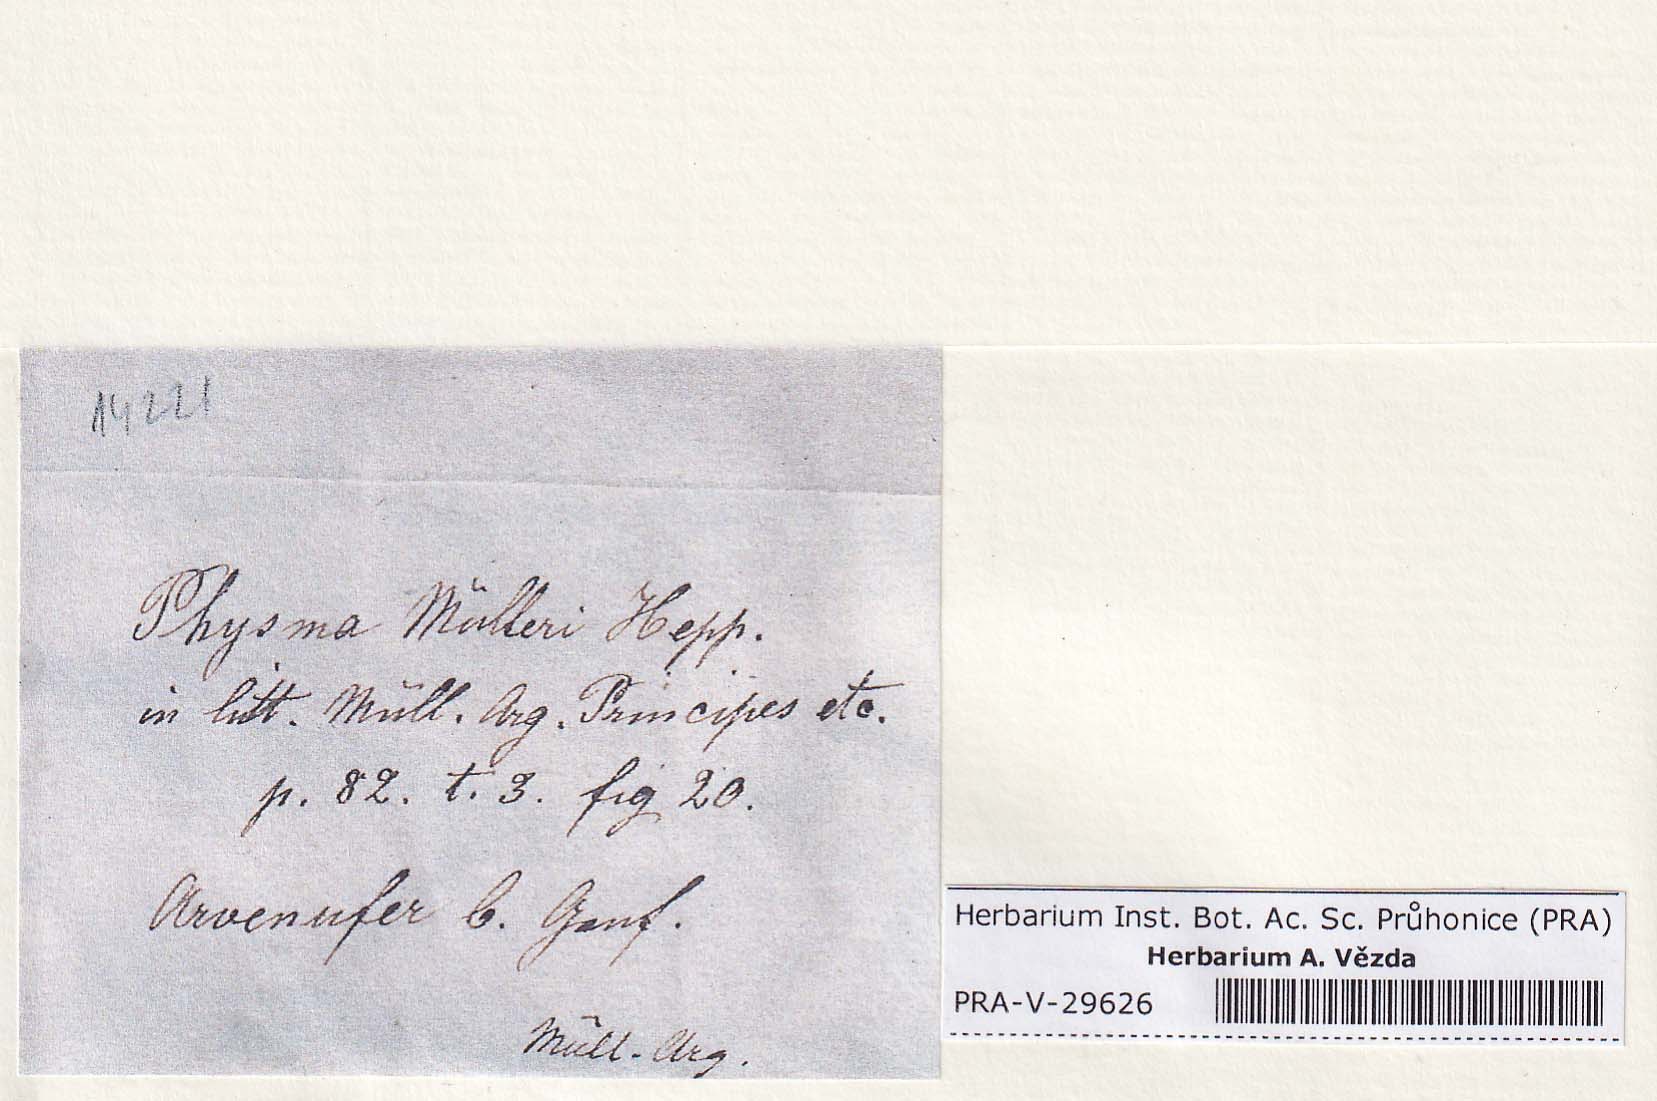 14221
Physma Mülleri Hepp.
in litt. Müll. Arg. Principes etc.
p. 82. t. 3. fig 20.
Arvenufer b. Genf.
Müll. Arg.
Herbarium Inst. Bot. Ac. Sc. Průhonice (PRA)
Herbarium A. Vězda
PRA-V-29626